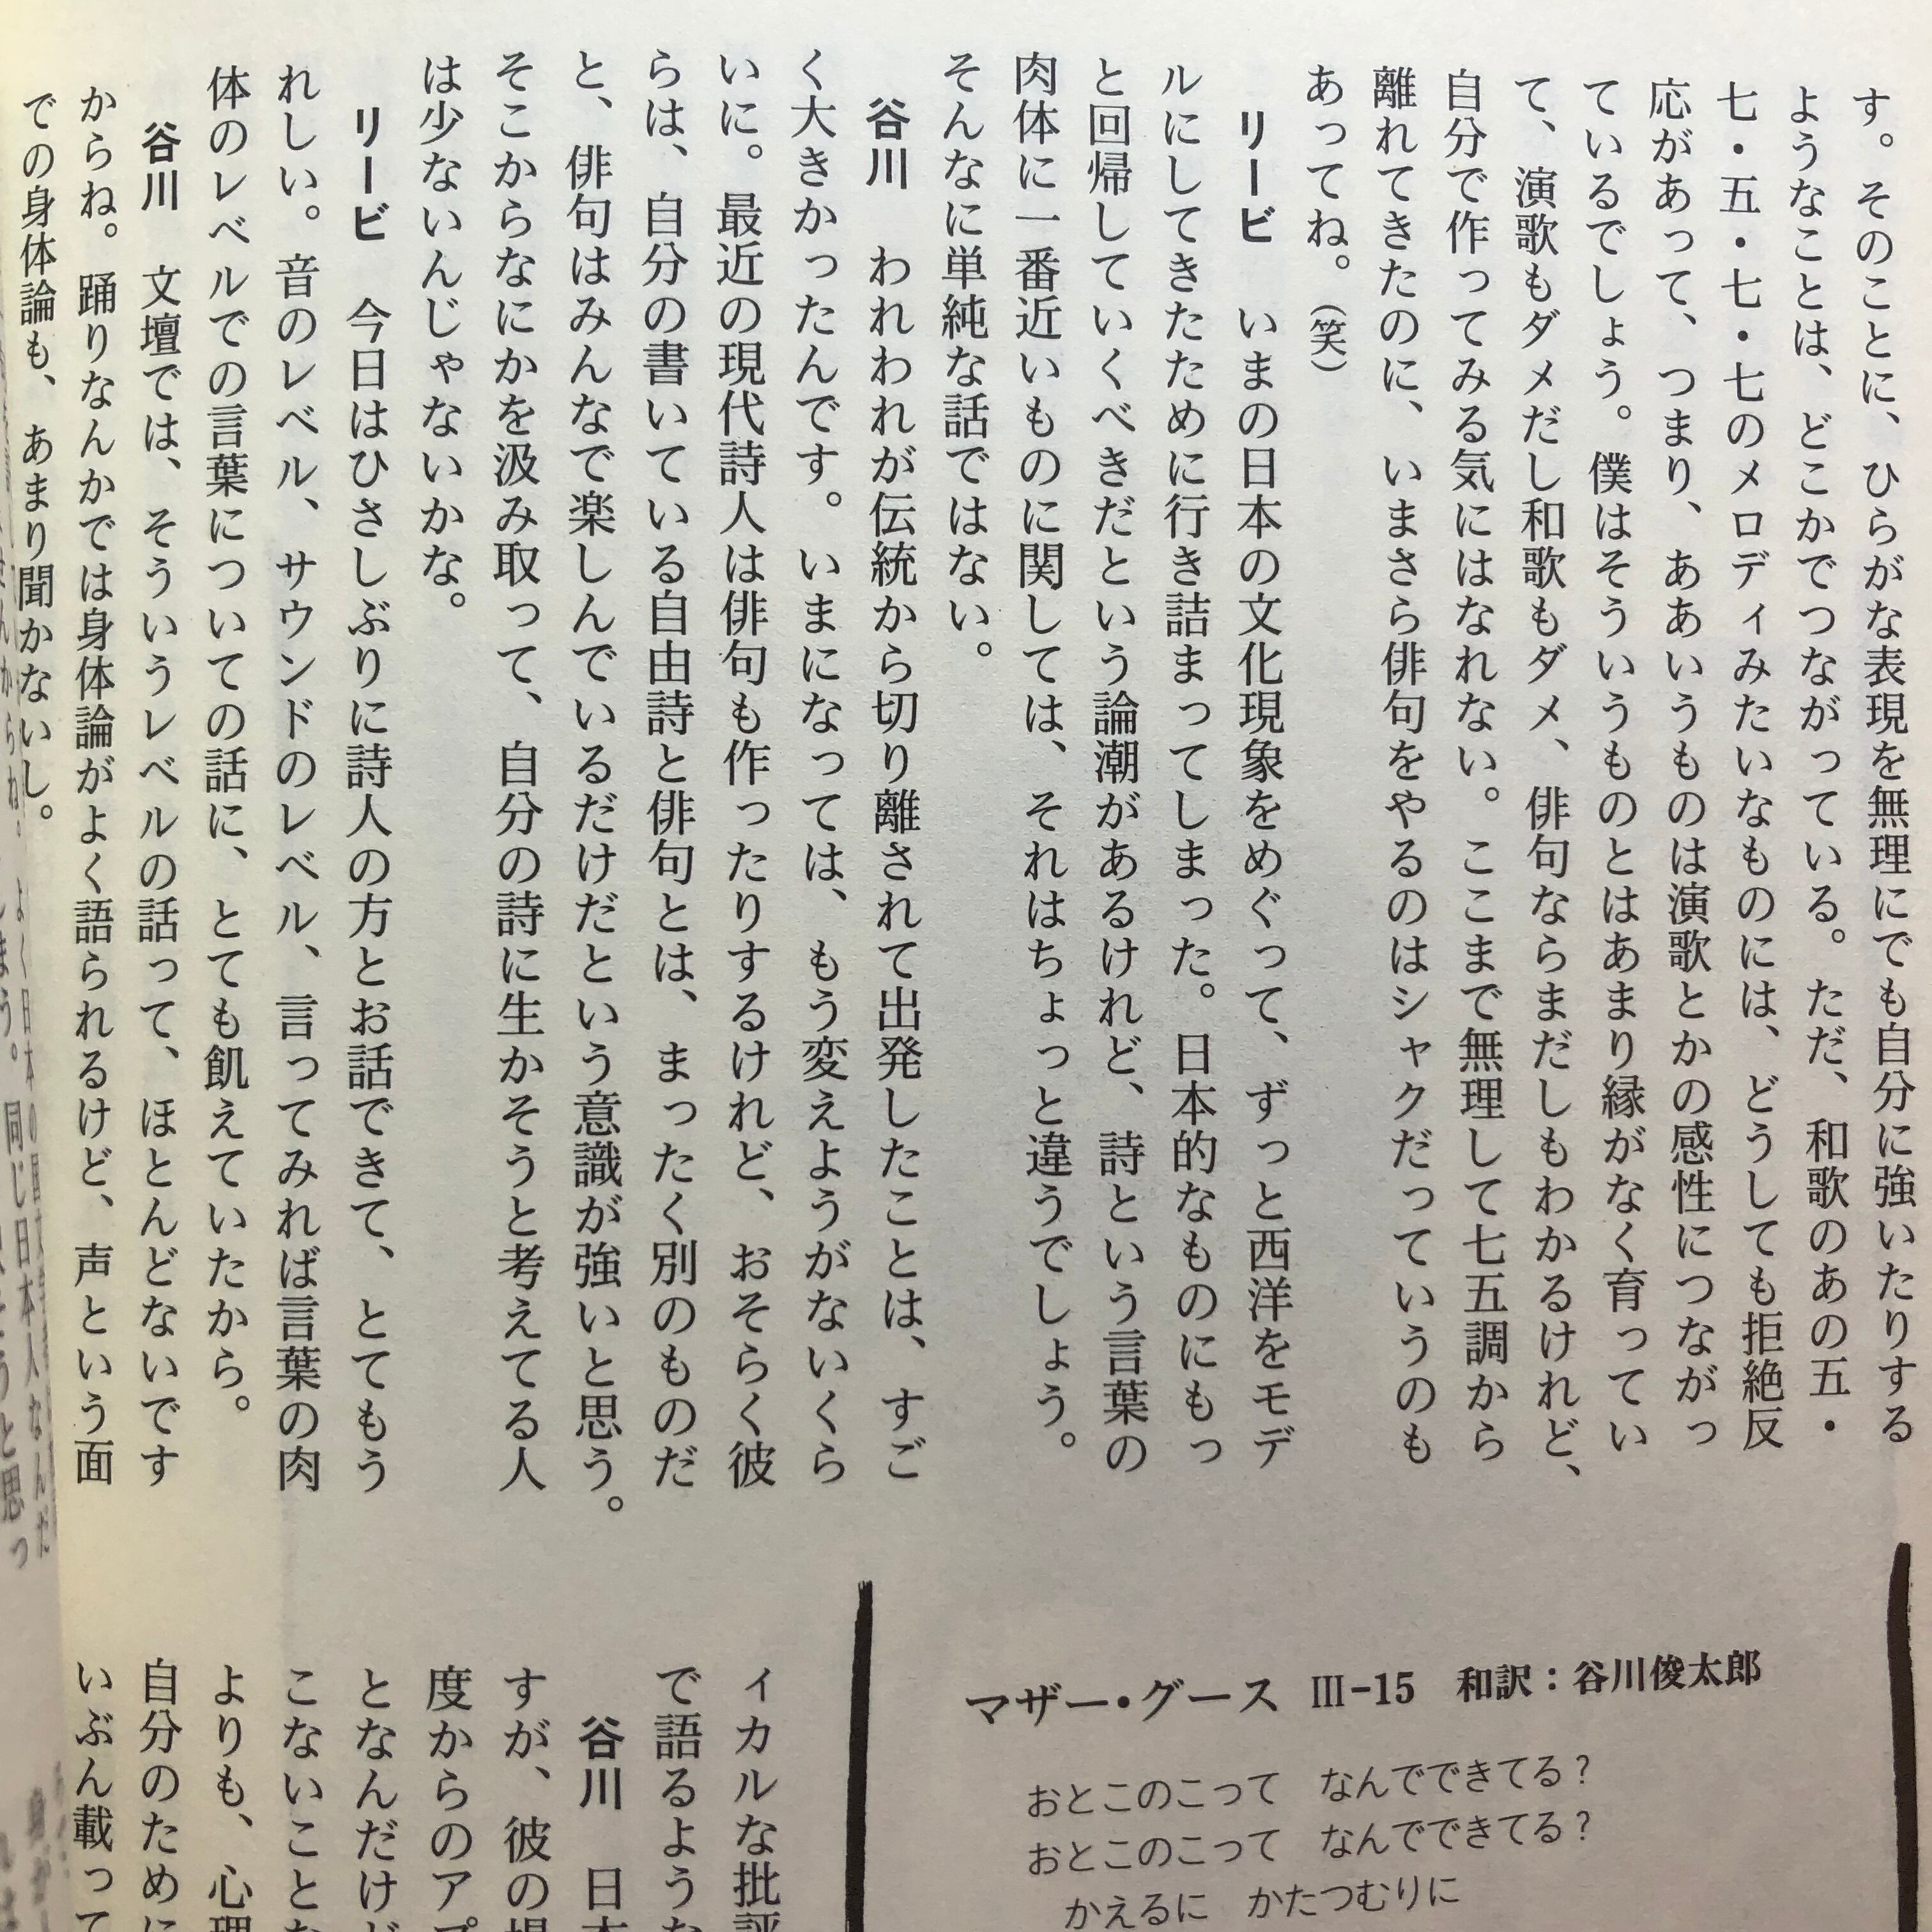 す。そのことに、ひらがな表現を無理にでも自分に強いたりする
ようなことは、どこかでつながっている。ただ、和歌のあの五・
七・五・七・七のメロディみたいなものには、どうしても拒絶反
応があって、つまり、ああいうものは演歌とかの感性につながっ
ているでしょう。僕はそういうものとはあまり縁がなく育ってい
て、演歌もダメだし和歌もダメ、俳句ならまだしもわかるけれど、
自分で作ってみる気にはなれない。ここまで無理して七五調から
離れてきたのに、いまさら俳句をやるのはシャクだっていうのも
あってね。（笑）
リービ　いまの日本の文化現象をめぐって、ずっと西洋をモデ
ルにしてきたために行き詰まってしまった。日本的なものにもっ
と回帰していくべきだという論潮があるけれど、詩という言葉の
肉体に一番近いものに関しては、それはちょっと違うでしょう。
そんなに単純な話ではない。
谷川　われわれが伝統から切り離されて出発したことは、すご
く大きかったんです。いまになっては、もう変えようがないくら
いに。最近の現代詩人は俳句も作ったりするけれど、おそらく彼
らは、自分の書いている自由詩と俳句とは、まったく別のものだ
と、俳句はみんなで楽しんでいるだけだという意識が強いと思う。
そこからなにかを汲み取って、自分の詩に生かそうと考えてる人
は少ないんじゃないかな。
リービ　今日はひさしぶりに詩人の方とお話できて、とてもう
れしい。音のレベル、サウンドのレベル、言ってみれば言葉の肉
体のレベルでの言葉についての話に、とても飢えていたから。
谷川　文壇では、そういうレベルの話って、ほとんどないです
からね。踊りなんかでは身体論がよく語られるけど、声という面
での身体論も、あまり聞かないし。
マザー・グース　Ⅲ-15　和訳：谷川俊太郎
おとこのこって　なんでできてる？
おとこのこって　なんでできてる？
かえるに　かたつむりに
ィカルな批評
で語るような
谷川　日本
すが、彼の場
度からのアプ
となんだけど
こないことな
よりも、心理
自分のために
いぶん載って